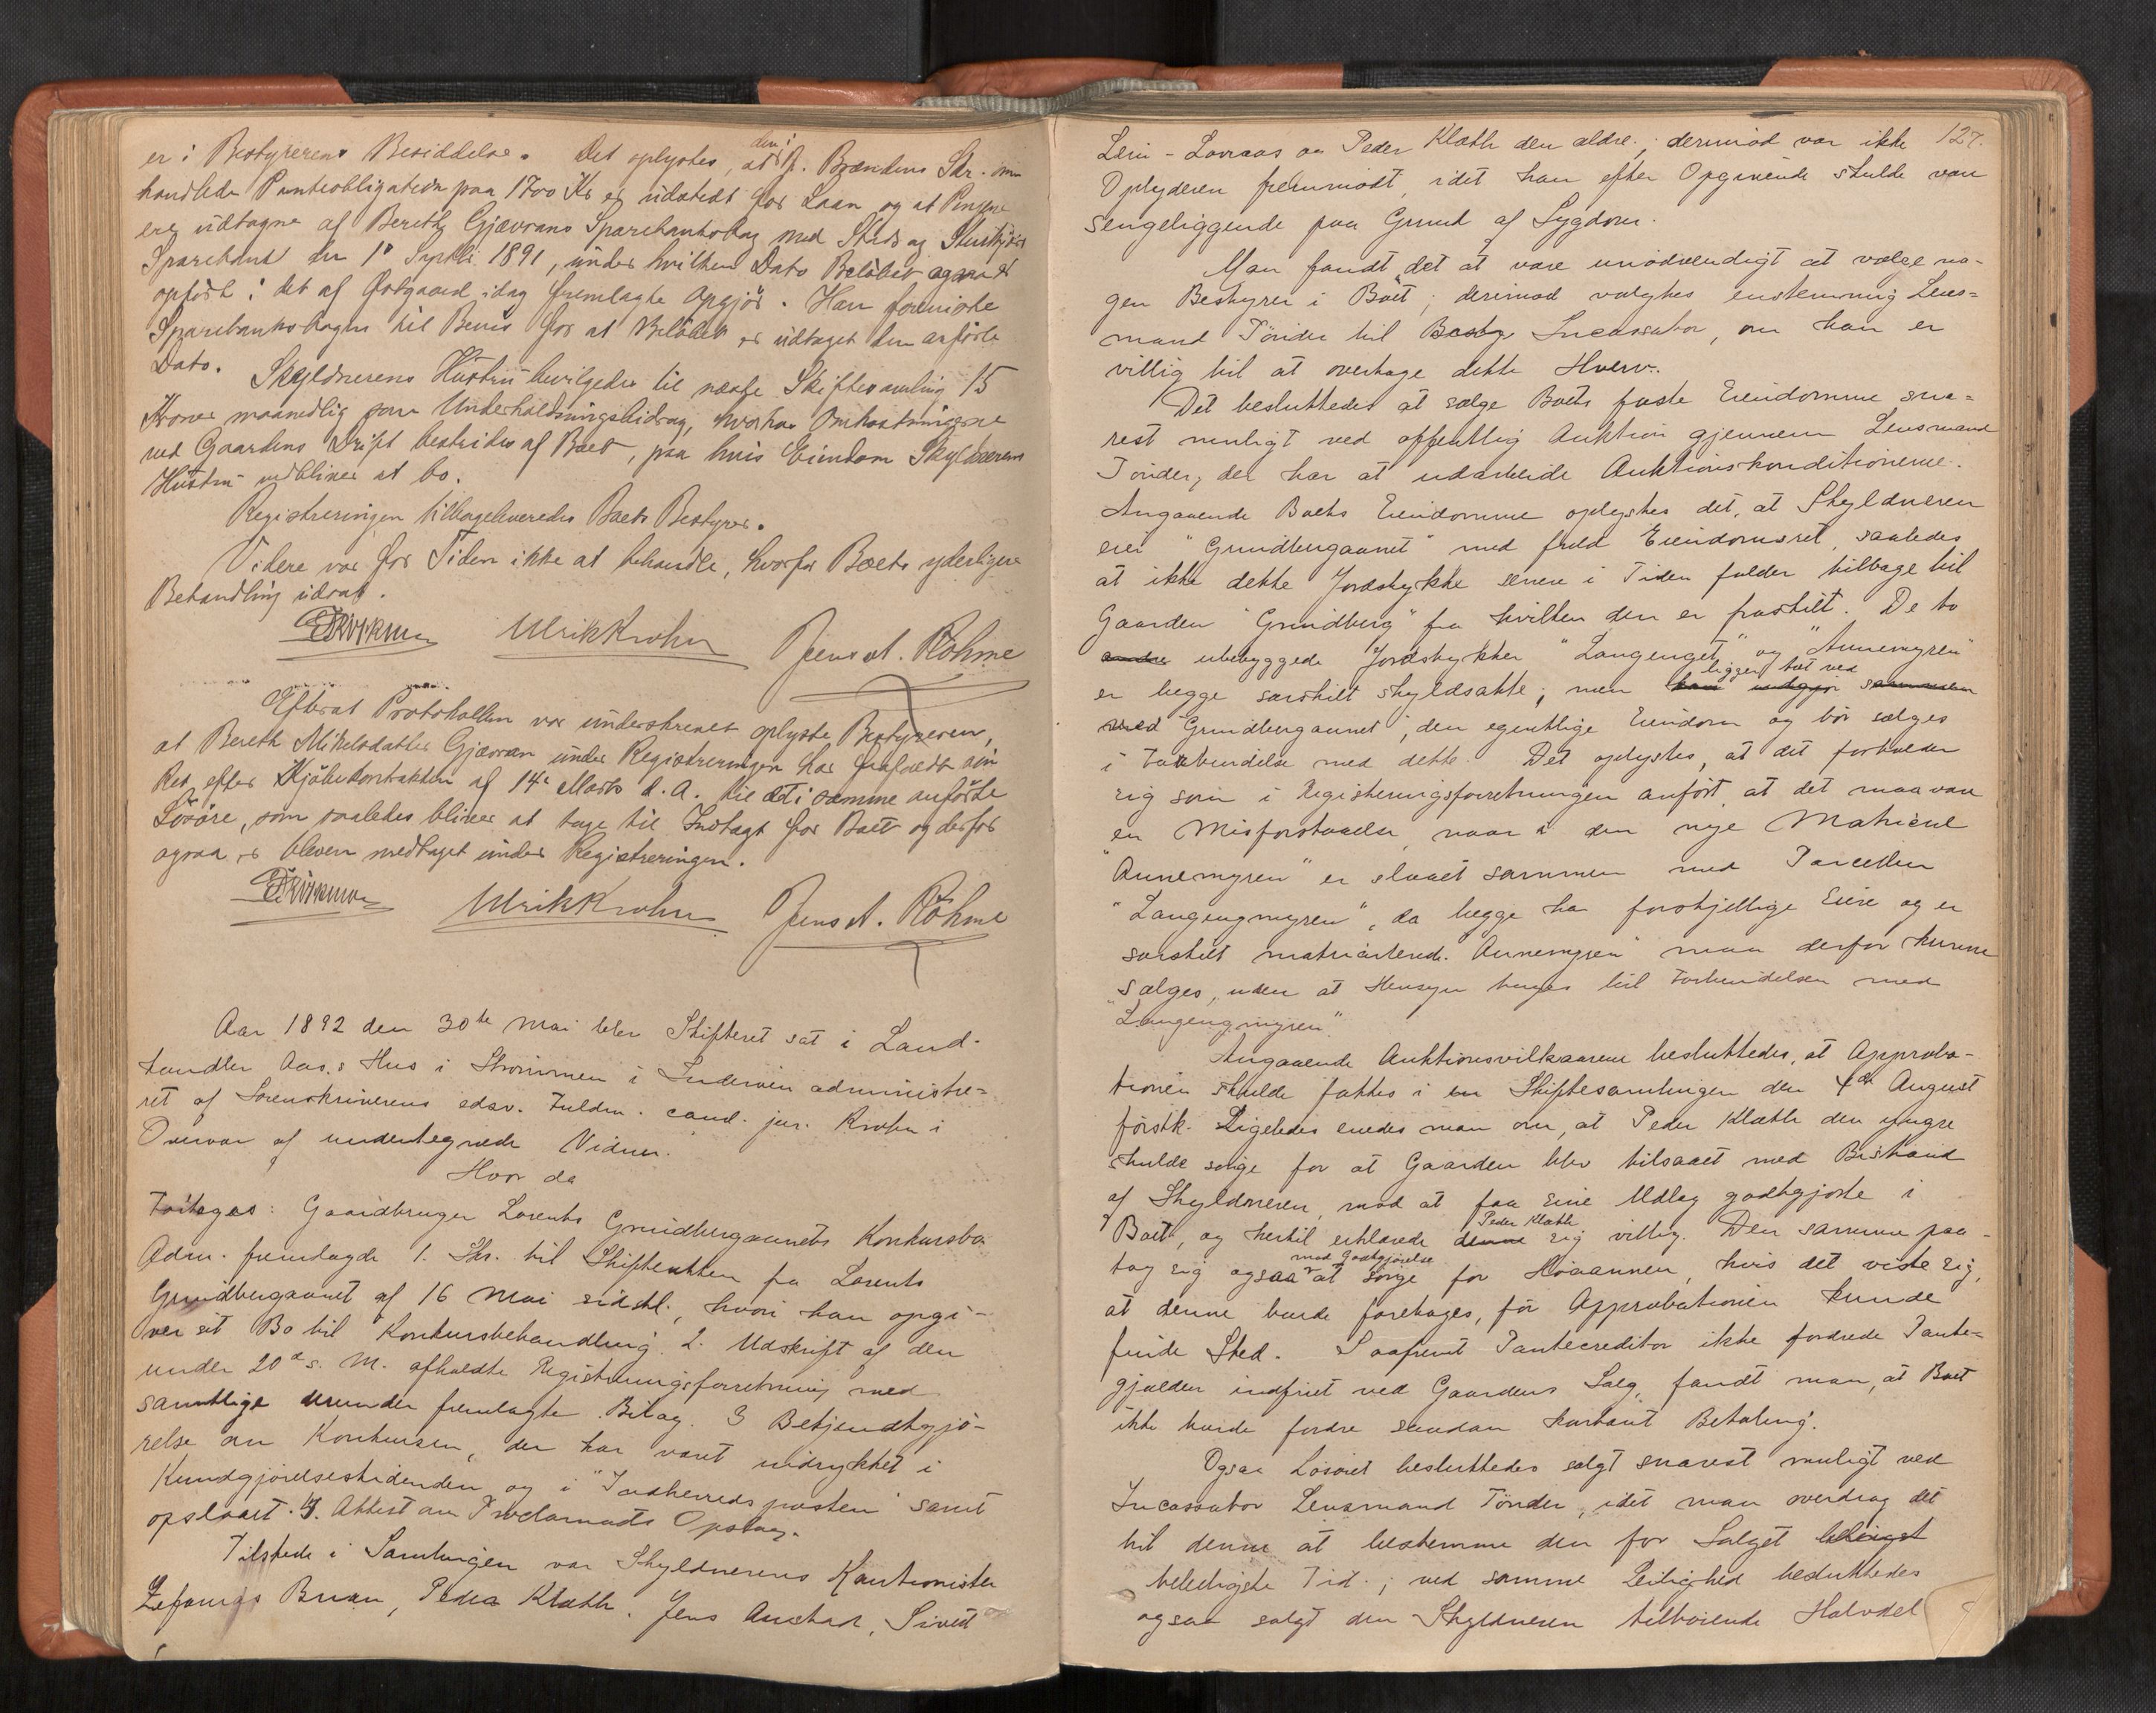 er i Bestyrerens Besiddelse. Det oplystes, at den i A. Brændens Skr. om
handlede Panteobligation paa 1700 Kr er udstedt for Laan og at Pengene
ere udtagne af Bereth Gjævrans Sparebanksbog med Stods og Stenkjærs
Sparebank den 1ste Septbr. 1891, under hvilken Dato Beløbet ogsaa er
opført i det af Østgaard idag fremlagte Opgjør. Han foreviste
Sparebanksbogen til Bevis for at Beløbet er udtaget den anførte
Dato. Skyldnerens Hustru bevilgedes til næste Skiftesamling 15
Kroner maanedlig som Underholdningsbidrag, hvorhos Omkostningerne
ved Gaardens Drift bestrides af Boet, paa hvis Eiendom Skyldnerens
Hustru vedbliver at bo.
Registreringen tilbageleveredes Boets Bestyrer.
Videre var for Tiden ikke at behandle, hvorfor Boets yderligere
Behandling udsat.
Ulrik Krohn Jens A. Röhme
Efterat Protokollen var underskrevet oplyste Bestyreren,
at Bereth Mikelsdatter Gjævran under Registreringen har frafaldt sin
Ret efter Kjøbekontrakten af 14de Marts d. A. til det i samme anførte
Løsøre, som saaledes bliver at tage til Indtægt for Boet og derfor
ogsaa er bleven medtaget under Registreringen.
Ulrik Krohn Jens A. Röhme
Aar 1892 den 30te Mai blev Skifteret sat i Land-
handler Aas.s Hus i Strømmen i Inderøen administre=
ret af Sorenskriverens edsv. Fuldm. cand. jur. Krohn i
Overvær af undertegnede Vidner.
Hvor da
Foitoges: Gaardbruger Lorents Grundbergaunets Konkursbo
Adm. fremlagde 1. Skr. til Skifteretten fra Lorents
Grundbergaunet af 16 Mai sidstl., hvori han opgi-
ver sit Bo til Konkursbehandling. 2. Udskrift af den
under 20de s. M. afholdte Registreringsforretning med
samtlige derunder fremlagte Bilag. 3 Bekjendtgjø-
relse om Konkursen, der har været indrykket i
Kundgjørelsestidenden og i "Indherredsposten" samt
opslaaet. 4. Attest om Proclamaets Opslag.
Tilstede i Samlingen var Skyldnerens Kautionister
Zefanias Bruan, Peder Klæth. Jens Austad, Sivert
127.
Lein-Lorraas og Peder Klæth den ældre; derimod var ikke
Opbyderen fremmødt, idet han efter Opgivende skulde være
sengeliggende paa Grund af Sygdom.
Man fandt det at være unødvendigt at vælge no-
gen Bestyrer i Boet; derimod valgtes enstemmig Lens=
mand Tönder til Besty Incassator, om han er
villig til at overtage dette Hverv.
Det besluttedes at sælge Boets faste Eiendomme sna=
rest muligt ved offentlig Auktion gjennem Lensmand
Tönder, der har at udarbeide Auktionskonditionerne.
Angaaende Boets Eiendomme oplystes det, at Skyldneren
eier "Grundbergaunet" med fuld Eiendomsret, saaledes
at ikke dette Jordstykke senere i Tiden falder tilbage til
Gaarden "Grundberg" fra hvilken den er fraskilt. De to
andre ubebyggede Jordstykker "Langenget" og "Aunemyren"
er begge særskilt skyldsatte; men ligger tæt ved
med Grundbergaunet, den egentlige Eiendom og bør sælges
i Forbindelse med dette. Det oplystes, at det forholder
sig som i Registreringsforretningen anført, at det maa være
en Misforstaaelse, naar i den nye Matricul
"Aunemyren" er slaaet sammen med Parcellen
"Langengmyren", da begge har forskjellige Eiere og er
særskilt matriculerede. Aunemyren maa derfor kunne
sælges, uden at Hensyn tages til Forbindelsen med
"Langengmyren".
Angaaende Auktionsvilkaarene besluttedes, at Approba-
tionen skulde fattes i en Skiftesamlingen den 4de August
førstk. Ligeledes enedes man om, at Peder Klæth den yngre
skulde sørge for at Gaarden blev tilsaaet med Bistand
af Skyldneren, mod at faa sine Udlæg godtgjorte i
Boet, og hertil erklærede denne Peder Klæth sig villig. Den samme paa-
tog sig ogsaa mod Godtgjørelse at sørge for Høaannen, hvis det viste sig,
at denne burde foretages, før Approbationen kunde
finde Sted. Saafremt Pantecreditor ikke fordrede Pante=
gjælden indfriet ved Gaardens Salg, fandt man, at Boet
ikke burde fordre saadan kontant Betaling.
Ogsaa Løsøret besluttedes solgt snarest muligt ved
Incassator Lensmand Tönder, idet man overdrog det
til denne at bestemme den for Salget
beleiligste Tid; ved samme Leilighed besluttedes
ogsaa solgt den Skyldneren tilhørende Halvdel